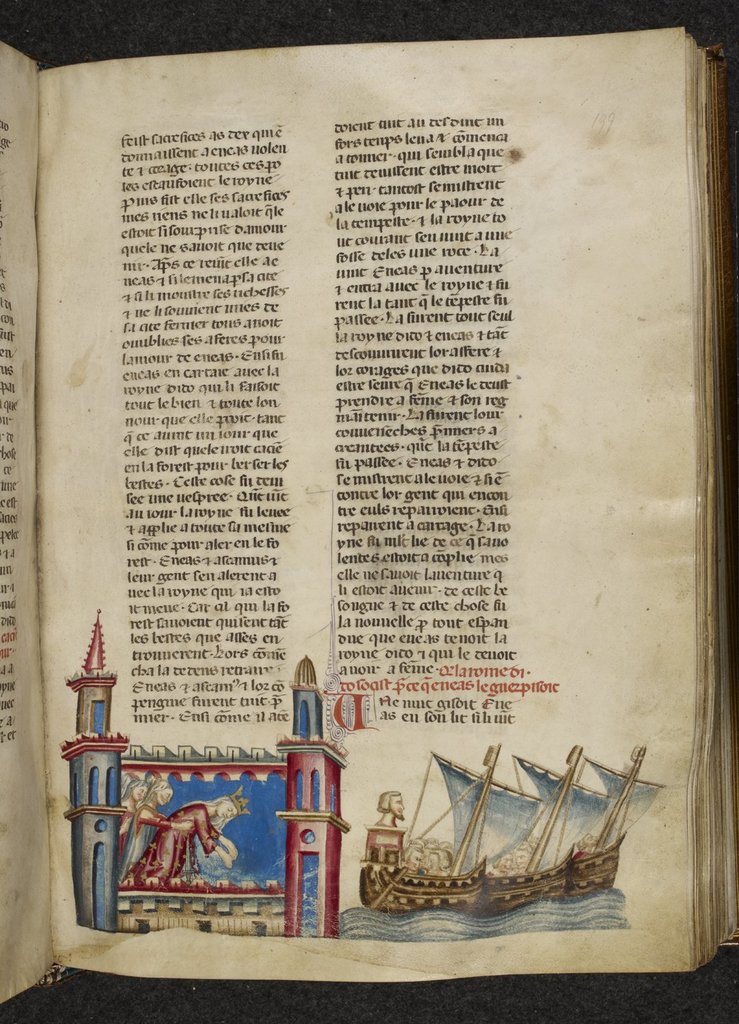 feist sacrefices as dex qui ē
donnaissent a eneas uolen
te ⁊ corage · toutes ces po
les eschaufoient le royne
puis fist elle ses sacrefices
mes riens ne li ualoit q̄le
estoit si sourprise damour
quele ne sauoit que deue
nir · Ap̄s ce reuīt elle a e
neas ⁊ si le mena p̄ sa cite
⁊ si li moustre ses richesses
⁊ ne li souuient mes de
sa cite fermer tous auoit
oubliies ses aferes pour
lamour de eneas · Ensi fu
eneas en cartaie auec la
royne dido qui li faisoit
tout le bien ⁊ toute lon
nour que elle pooit · tant
q̄ ce auint un iour que
elle dist quele iroit cacier
en la forest pour berser les
bestes · Ceste cose fu deui
see une uespree · Quāt uīt
au iour la royne fu leuee
⁊ aplie a toute sa mesnie
si cōme pour aler en le fo
rest · Eneas ⁊ ascanius ⁊
leur gent sen alerent a
uec la royne qui ia esto
it meue · Car cil qui la fo
rest sauoient quisent tāt
les bestes que asses en
trouuerent · Lors cōmē
cha la tedens retraire
Eneas ⁊ ascaniꝰ ⁊ lor cō
pengnie furent tuit p̄
mier · Ensi cōme il ace
doient tuit au desduit un
fors temps leua ⁊ cōmenca
a touner · qui sembla que
tuit deuissent estre mort
⁊ peri · tantost se mistrent
a le uoie pour le paour de
la tempeste · ⁊ la royne to
ut courant sen uint a une
fosse deles une roce · La
uint Eneas p̄ auenture
⁊ entra auec le royne ⁊ fu
rent la tant q̄ le tēpeste fu
passee · La furent tout seul
la royne dido ⁊ eneas ⁊ tāt
descouurirent lor affere ⁊
lor corages que dido cuida
estre seure q̄ Eneas le deust
prendre a fēme ⁊ son reg
maītenir · La furent lour
conuenēches p̄miers a
creantees · quāt la tēpeste
fu passee · Eneas ⁊ dido
se mistrent a le uoie ⁊ si ē
contre lor gent qui encon
tre euls repairoient · Ensi
repairent a cartage · La ro
yne fu mlt lie de ce q̄ sa uo
lentes estoit acōplie mes
elle ne sauoit lauenture q̄
li estoit auenir · de ceste be
songne ⁊ de ceste chose fu
la nouuelle p̄ tout espan
due que eneas tenoit la
royne dido ⁊ qui le deuoit
auoir a fēme · Q̄ la roine di
do socist p̄ ce q̄ eneas le guerpisoit
Une nuit gisoit Ene
as en son lit si li uīt
199